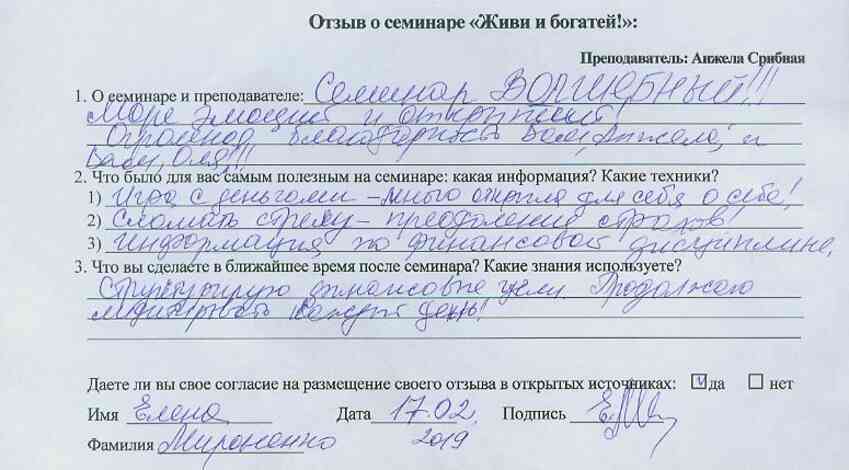 Отзыв о семинаре «Живи и богатей!»:
Преподаватель: Анжела Срибная
1. О семинаре и преподавателе: Семинар ВОЛШЕБНЫЙ!!!
Море эмоций и открытий!
Огромная благодарность Вам, Анжела, и
Вам, Оля!!!
2. Что было для вас самым полезным на семинаре: какая информация? Какие техники?
1) Игра с деньгами – много открыла для себя о себе!
2) Сломать стрелу – преодоление страхов!
3) Информация по финансовой дисциплине.
3. Что вы сделаете в ближайшее время после семинара? Какие знания используете?
Структурирую финансовые цели. Продолжаю
медитировать каждый день!
Даете ли вы свое согласие на размещение своего отзыва в открытых источниках: да нет
Имя Елена Дата 17.02. Подпись
Фамилия Мироненко 2019